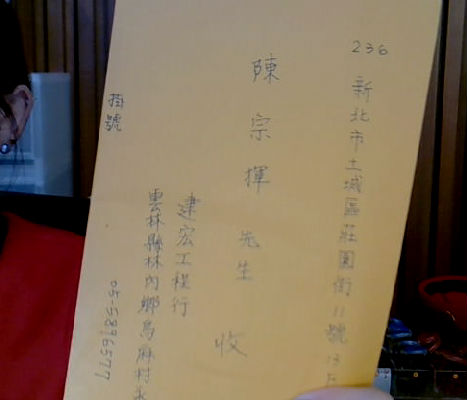 236
新北市土城區莊園街11號13F
陳宗揮先生 收
建宏工程行
雲林縣林內鄉烏麻村
掛號
05-5896577